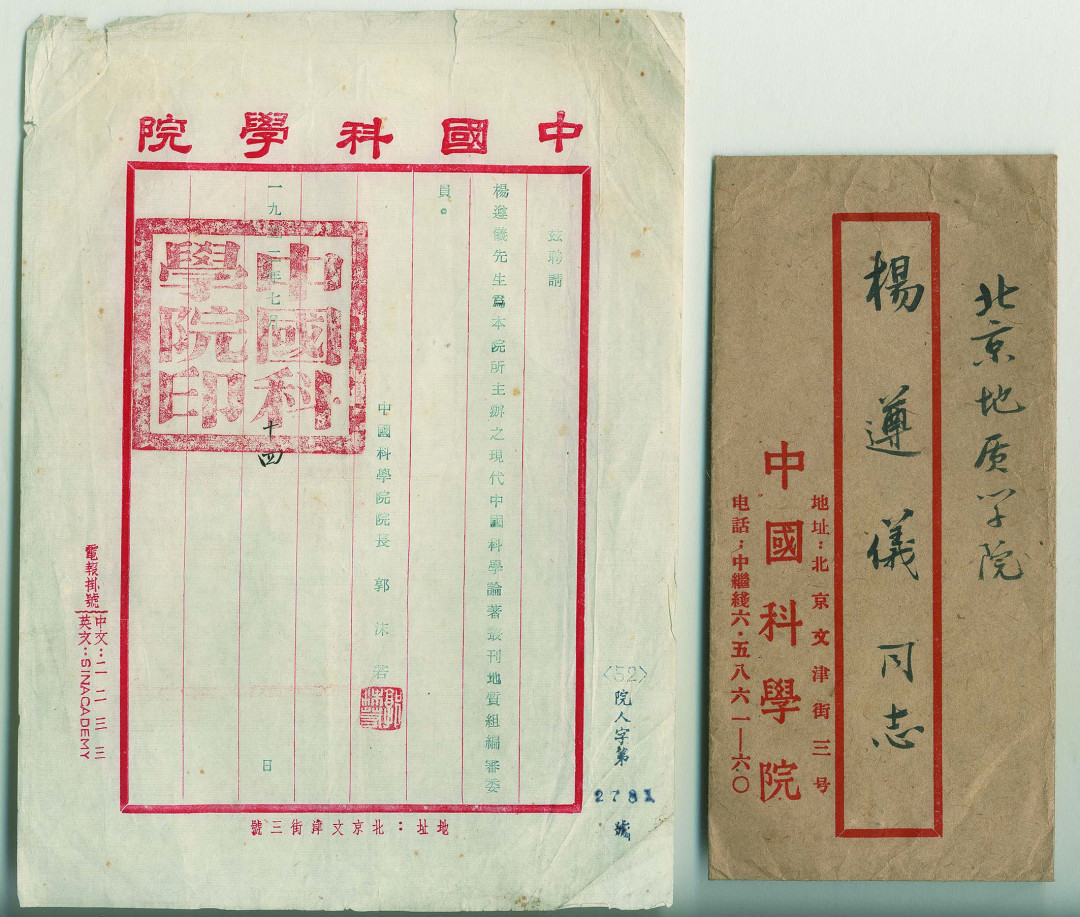 中國科學院
茲聘請
楊遵儀先生爲本院所主辦之現代中國科學論著叢刊地質組編審委
員。
中國科學院院長 郭沫若
一九五二年七月十四日
中國科學院印
郭沫若
<52>院人字第2781號
地址:北京文津街三號
電報掛號
中文:二二三三
英文:SINACADEMY
北京地质学院
楊遵儀同志
地址:北京文津街三号
中國科學院
电話:中繼綫六·五八六一—六〇